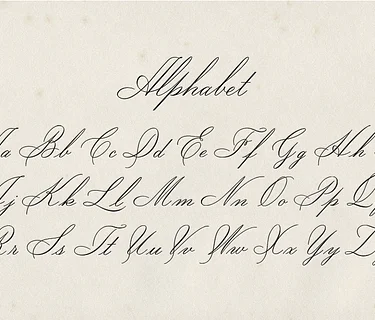 Alphabet
a Bb Cc Dd Ee Ff Gg Hh
j Kk Ll Mm Nn Oo Pp Q
Rr Ss Tt Uu Vv Ww Xx Yy Z